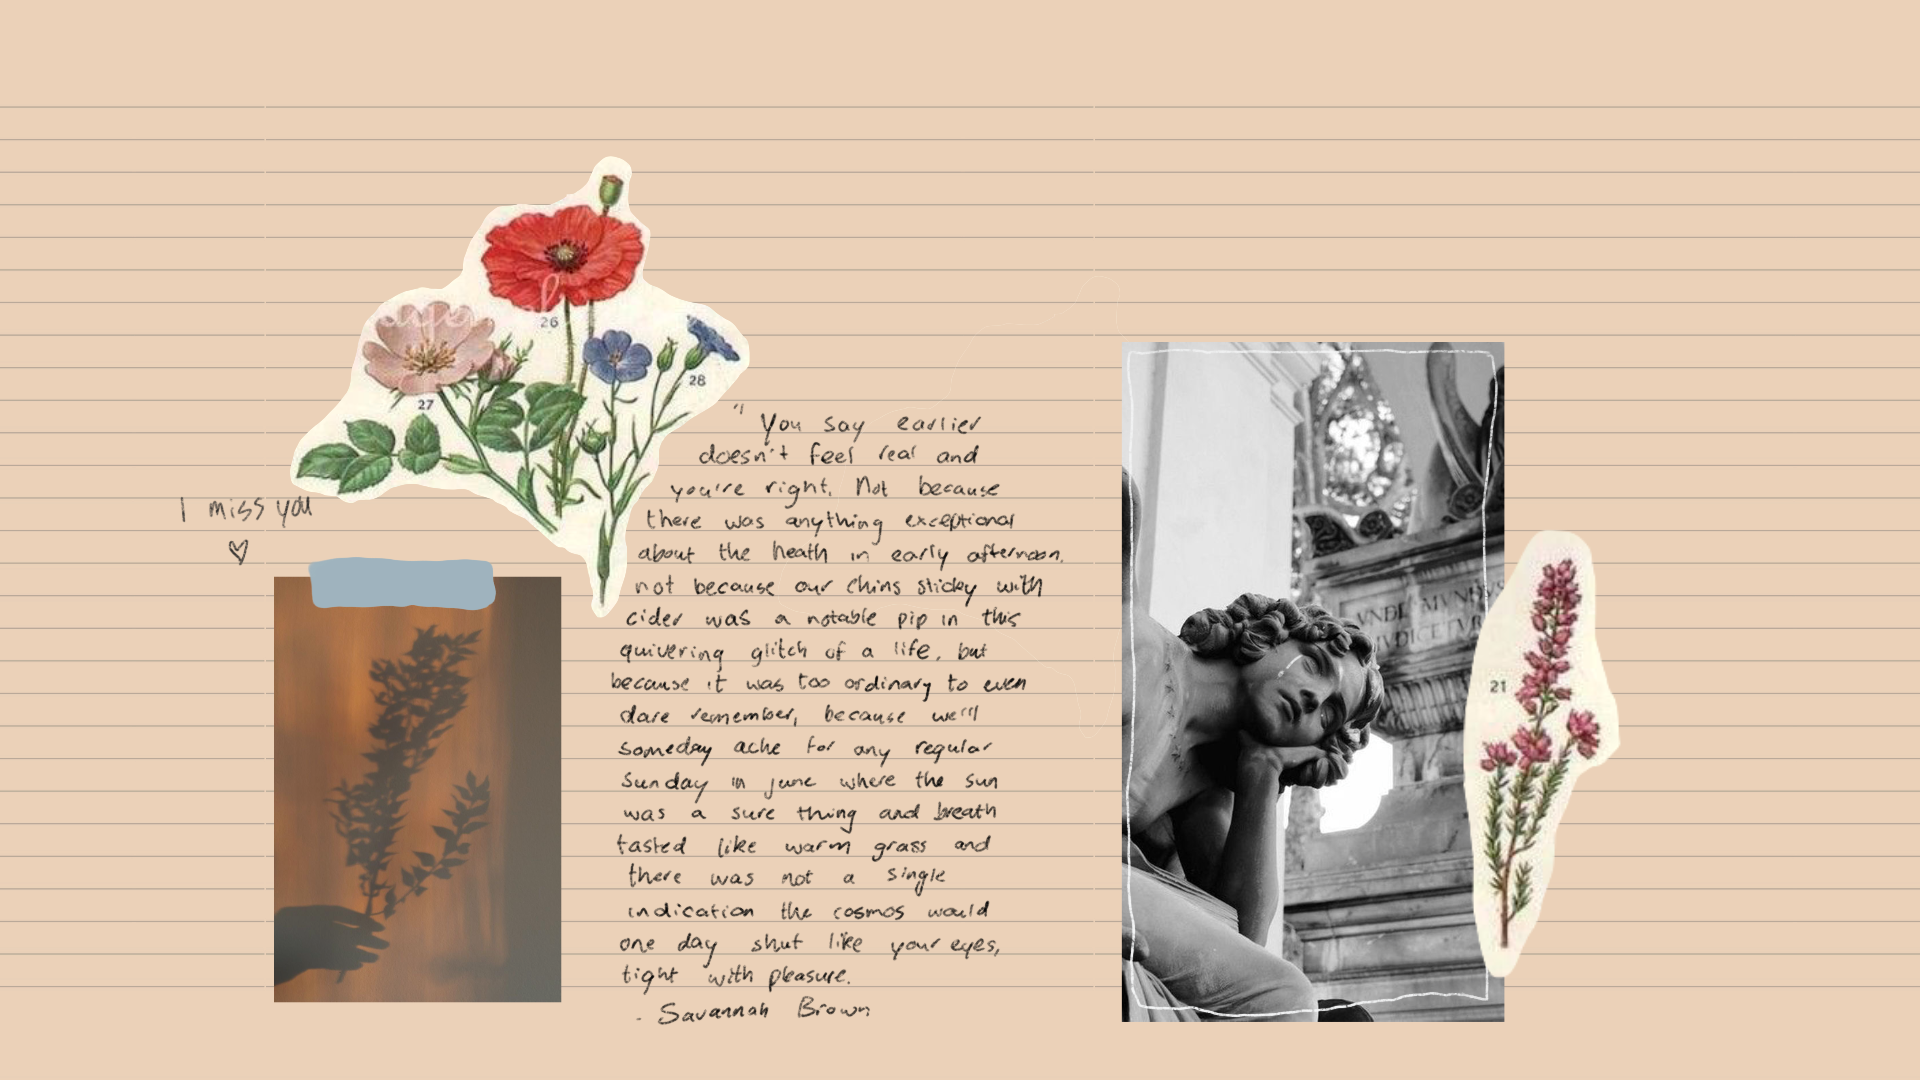 26
28
27
I miss you
"You say earlier
doesn't feel real and
you're right. Not because
there was anything exceptional
about the heath in early afternoon.
not because our chins sticky with
cider was a notable pip in this
quivering glitch of a life, but
because it was too ordinary to even
dare remember, because we'll
someday ache for any regular
Sunday in june where the sun
was a sure thing and breath
tasted like warm grass and
there was not a single
indication the cosmos would
one day shut like your eyes,
tight with pleasure.
- Savannah Brown
21